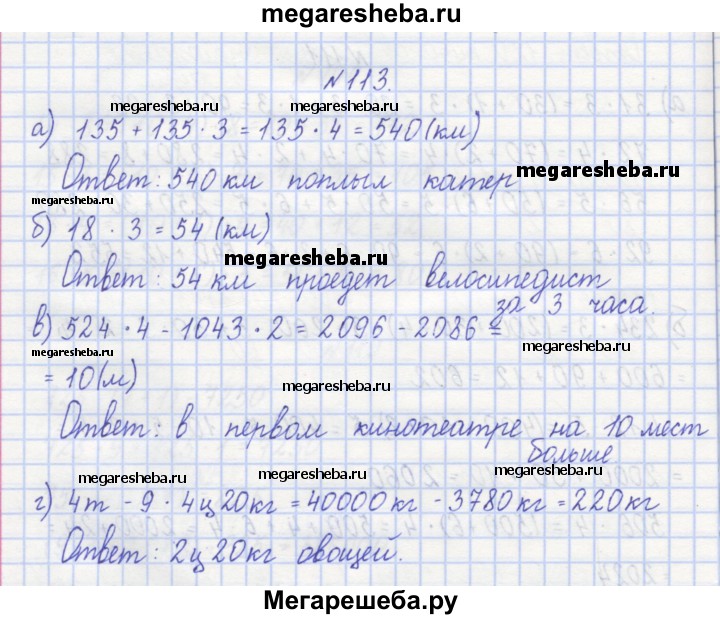 megaresheba.ru
№113.
megaresheba.ru megaresheba.ru
а) 135 + 135 · 3 = 135 · 4 = 540 (км)
Ответ: 540 км поплыл катер
megaresheba.ru
megaresheba.ru
б) 18 · 3 = 54 (км)
megaresheba.ru
Ответ: 54 км проедет велосипедист
за 3 часа.
в) 524 · 4 - 1043 · 2 = 2096 - 2086 =
megaresheba.ru
= 10 (м)
megaresheba.ru
Ответ: в первом кинотеатре на 10 мест
больше
megaresheba.ru megaresheba.ru
г) 4т - 9 · 4ц20кг = 40000кг - 3780кг = 220кг
megaresheba.ru
Ответ: 2ц 20кг овощей.
Мегарешеба.ру